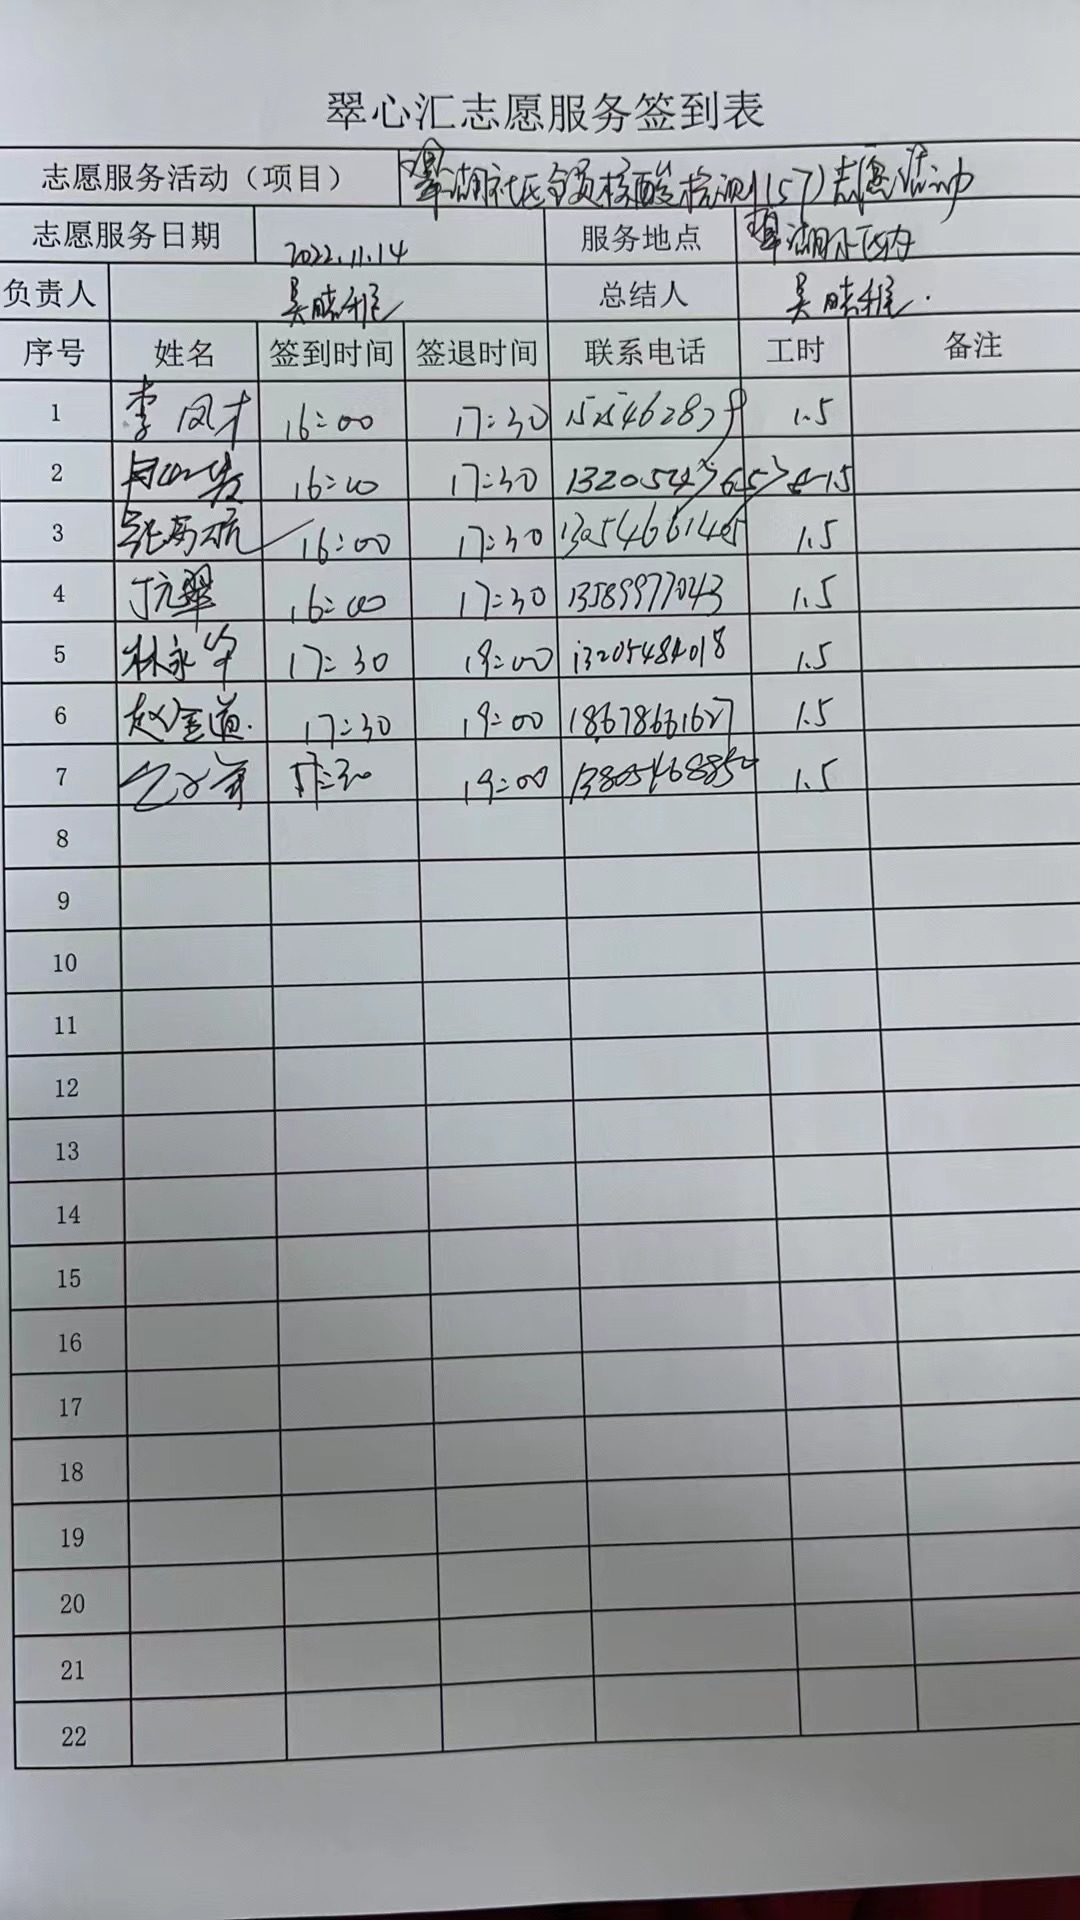 翠心汇志愿服务签到表
志愿服务活动（项目） 翠湖社区全员核酸检测（57）志愿活动
志愿服务日期 2022.11.14 服务地点 翠湖小区内
负责人 吴 总结人 吴
序号 姓名 签到时间 签退时间 联系电话 工时 备注
1 李凤才 16:00 17:30 1.5
2 16:00 17:30 1.5
3 16:00 17:30 13054661405 1.5
4 16:00 17:30 13589977043 1.5
5 林永华 17:30 19:00 13205484018 1.5
6 赵金道 17:30 19:00 18678661627 1.5
7 17:30 19:00 1.5
8
9
10
11
12
13
14
15
16
17
18
19
20
21
22